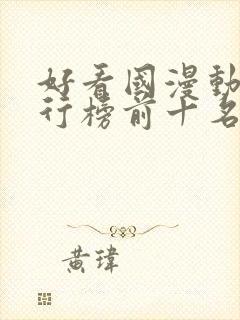 好看國漫動
行榜前十名
黃瑋